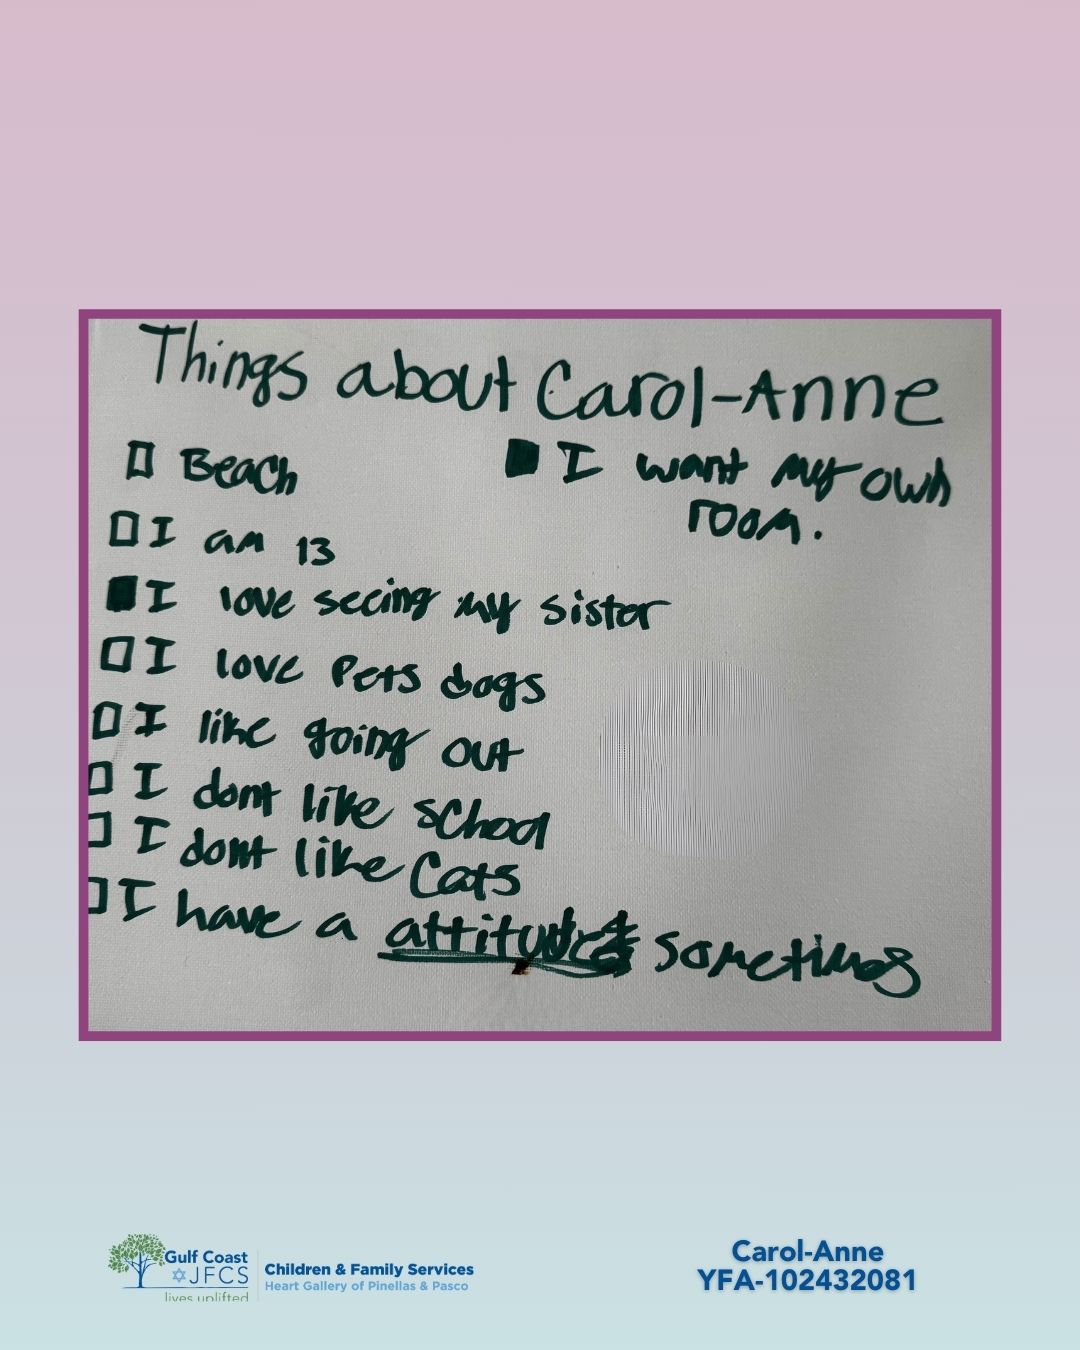 Things about Carol-Anne
Beach
I am 13
I love seeing my sister
I love Pets dogs
I like going out
I dont like school
I dont like Cats
I have a attitude sometimes
I want my own
room.
Gulf Coast
JFCS
lives uplifted
Children & Family Services
Heart Gallery of Pinellas & Pasco
Carol-Anne
YFA-102432081